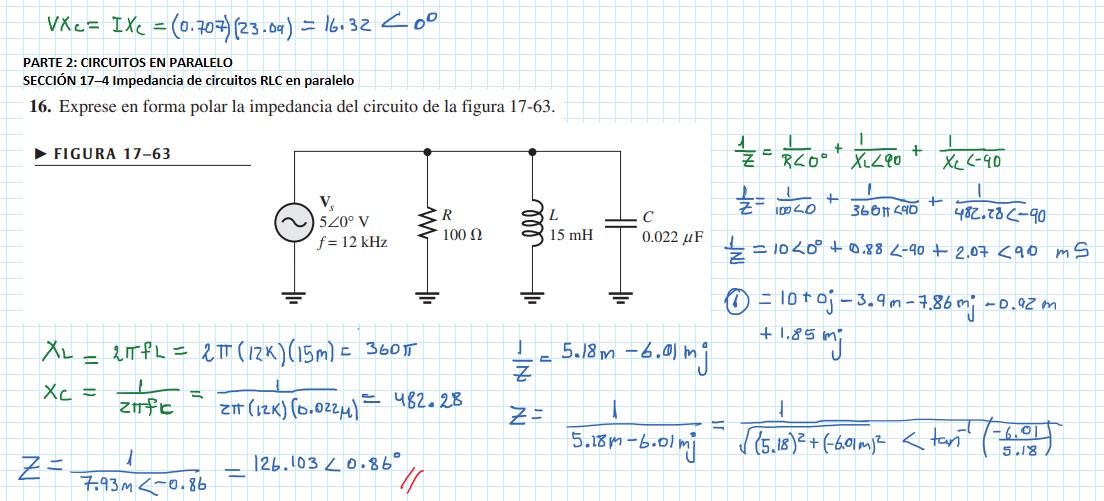 VXc = IXc = (0.707)(23.09) = 16.32 ∠0°
PARTE 2: CIRCUITOS EN PARALELO
SECCIÓN 17–4 Impedancia de circuitos RLC en paralelo
16. Exprese en forma polar la impedancia del circuito de la figura 17-63.
► FIGURA 17–63
Vs
5∠0° V
f = 12 kHz
R
100 Ω
L
15 mH
C
0.022 μF
1/Z = 1/R∠0° + 1/XL∠90 + 1/XC∠-90
1/Z = 1/100∠0 + 1/360π∠90 + 1/482.28∠-90
1/Z = 10∠0° + 0.88∠-90 + 2.07∠90 mS
① = 10+0j - 3.9m - 7.86mj - 0.92m
+ 1.85mj
XL = 2πfL = 2π(12K)(15m) = 360π
XC = 1/2πfC = 1/2π(12K)(0.022μ) = 482.28
1/Z = 5.18m - 6.01mj
Z = 1/5.18m - 6.01mj = 1/√(5.18)²+(-6.01m)² ∠tan⁻¹(-6.01/5.18)
Z = 1/7.93m∠-0.86 = 126.103∠0.86° //